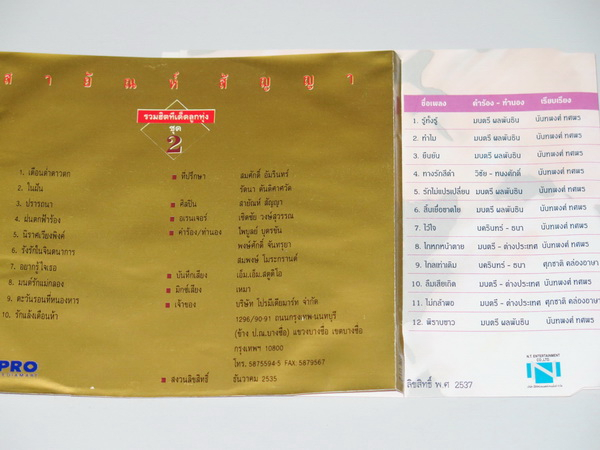 สายัณห์ สัญญา
รวมฮิตทีเด็ดลูกทุ่ง
ชุด
2
1. เดือนต่ำดาวตก
2. ไนมืน
3. ปรารถนา
4. ฝนตกฟ้าร้อง
5. นิราศเวียงพิงค์
6. รังรักในจินตนาการ
7. อยากรู้ใจเธอ
8. มนต์รักแม่กลอง
9. ตะวันรอนที่หนองหาร
10. รักแล้งเดือนห้า
ที่ปรึกษา สมศักดิ์ อัมรินทร์
รัตนา ตันติศาศวัต
ศิลปิน สายัณห์ สัญญา
อเรนเจอร์ เชิดชัย วงษ์สุวรรณ
คำร้อง/ทำนอง ไพบูลย์ บุตรขัน
พงษ์ศักดิ์ จันทรุขา
สมพงษ์ โมระกรานต์
บันทึกเสียง เอ็ม.เอ็ม.สตูดิโอ
มิกซ์เสียง เหมา
เจ้าของ บริษัท โปรมีเดียมาร์ท จำกัด
1296/90-91 ถนนกรุงเทพ-นนทบุรี
(ข้าง ป.ณ.บางซื่อ) แขวงบางซื่อ เขตบางซื่อ
กรุงเทพฯ 10800
โทร. 5875594-5 FAX: 5879567
สงวนลิขสิทธิ์ ธันวาคม 2535
PRO
ชื่อเพลง คำร้อง - ทำนอง เรียบเรียง
1. รู้ทั้งรู้ มนตรี ผลพันธิน นันทพงศ์ ทศพร
2. ทำไม มนตรี ผลพันธิน นันทพงศ์ ทศพร
3. ยืนยัน มนตรี ผลพันธิน นันทพงศ์ ทศพร
4. ทางรักสีดำ วิชัย - ทนงศักดิ์ นันทพงศ์ ทศพร
5. รักไม่แปรเปลี่ยน มนตรี ผลพันธิน นันทพงศ์ ทศพร
6. ลิ้นเยื่อชายโย มนตรี ผลพันธิน นันทพงศ์ ทศพร
7. ไว้ใจ นครินทร์ - ธนา นันทพงศ์ ทศพร
8. โกหกหน้าตาย มนตรี - ต่างประเทศ นันทพงศ์ ทศพร
9. ไกลเท่าเดิม นครินทร์ - ธนา ศุภชาติ คล่องอาษา
10. ลืมเสียเถิด มนตรี - ต่างประเทศ นันทพงศ์ ทศพร
11. ไม่กล้าพอ มนตรี - ต่างประเทศ ศุภชาติ คล่องอาษา
12. พิราบขาว มนตรี ผลพันธิน นันทพงศ์ ทศพร
N.T ENTERTAINMENT
CO.,LTD.
ลิขสิทธิ์ พ.ศ 2537